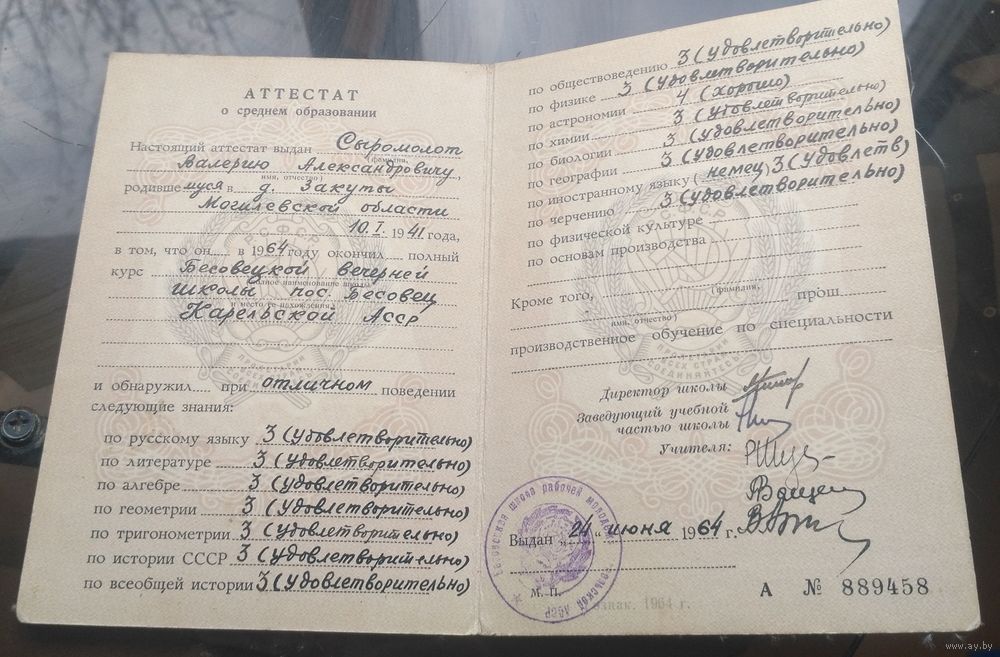 АТТЕСТАТ
о среднем образовании
Настоящий аттестат выдан Сыромолот
(фамилия,
Валерию Александровичу,
имя, отчество)
родившемуся в д. Закупы
Могилевской области
10.I. 1941 года,
в том, что он в 1964 году окончил полный
курс Бесовецкой вечерней
(полное наименование школы
школы пос. Бесовец
и место ее нахождения)
Карельской Асср
и обнаружил при отличном поведении
следующие знания:
по русскому языку 3 (удовлетворительно)
по литературе 3 (удовлетворительно)
по алгебре 3 (удовлетворительно)
по геометрии 3 (удовлетворительно)
по тригонометрии 3 (удовлетворительно)
по истории СССР 3 (удовлетворительно)
по всеобщей истории 3 (удовлетворительно)
по обществоведению 3 (удовлетворительно)
по физике 3 (удовлетворительно)
по астрономии 4 (хорошо)
по химии 3 (удовлетворительно)
по биологии 3 (удовлетворительно)
по географии 3 (удовлетворительно)
по иностранному языку (немец) 3 (удовлетв)
по черчению 3 (удовлетворительно)
по физической культуре
по основам производства
Кроме того,
(фамилия,
прош
имя, отчество)
производственное обучение по специальности
Директор школы
Заведующий учебной
частью школы
Учителя:
Выдан „24" июня 1964 г.
М. П.
Гознак. 1964 г.
А № 889458
www.ay.by